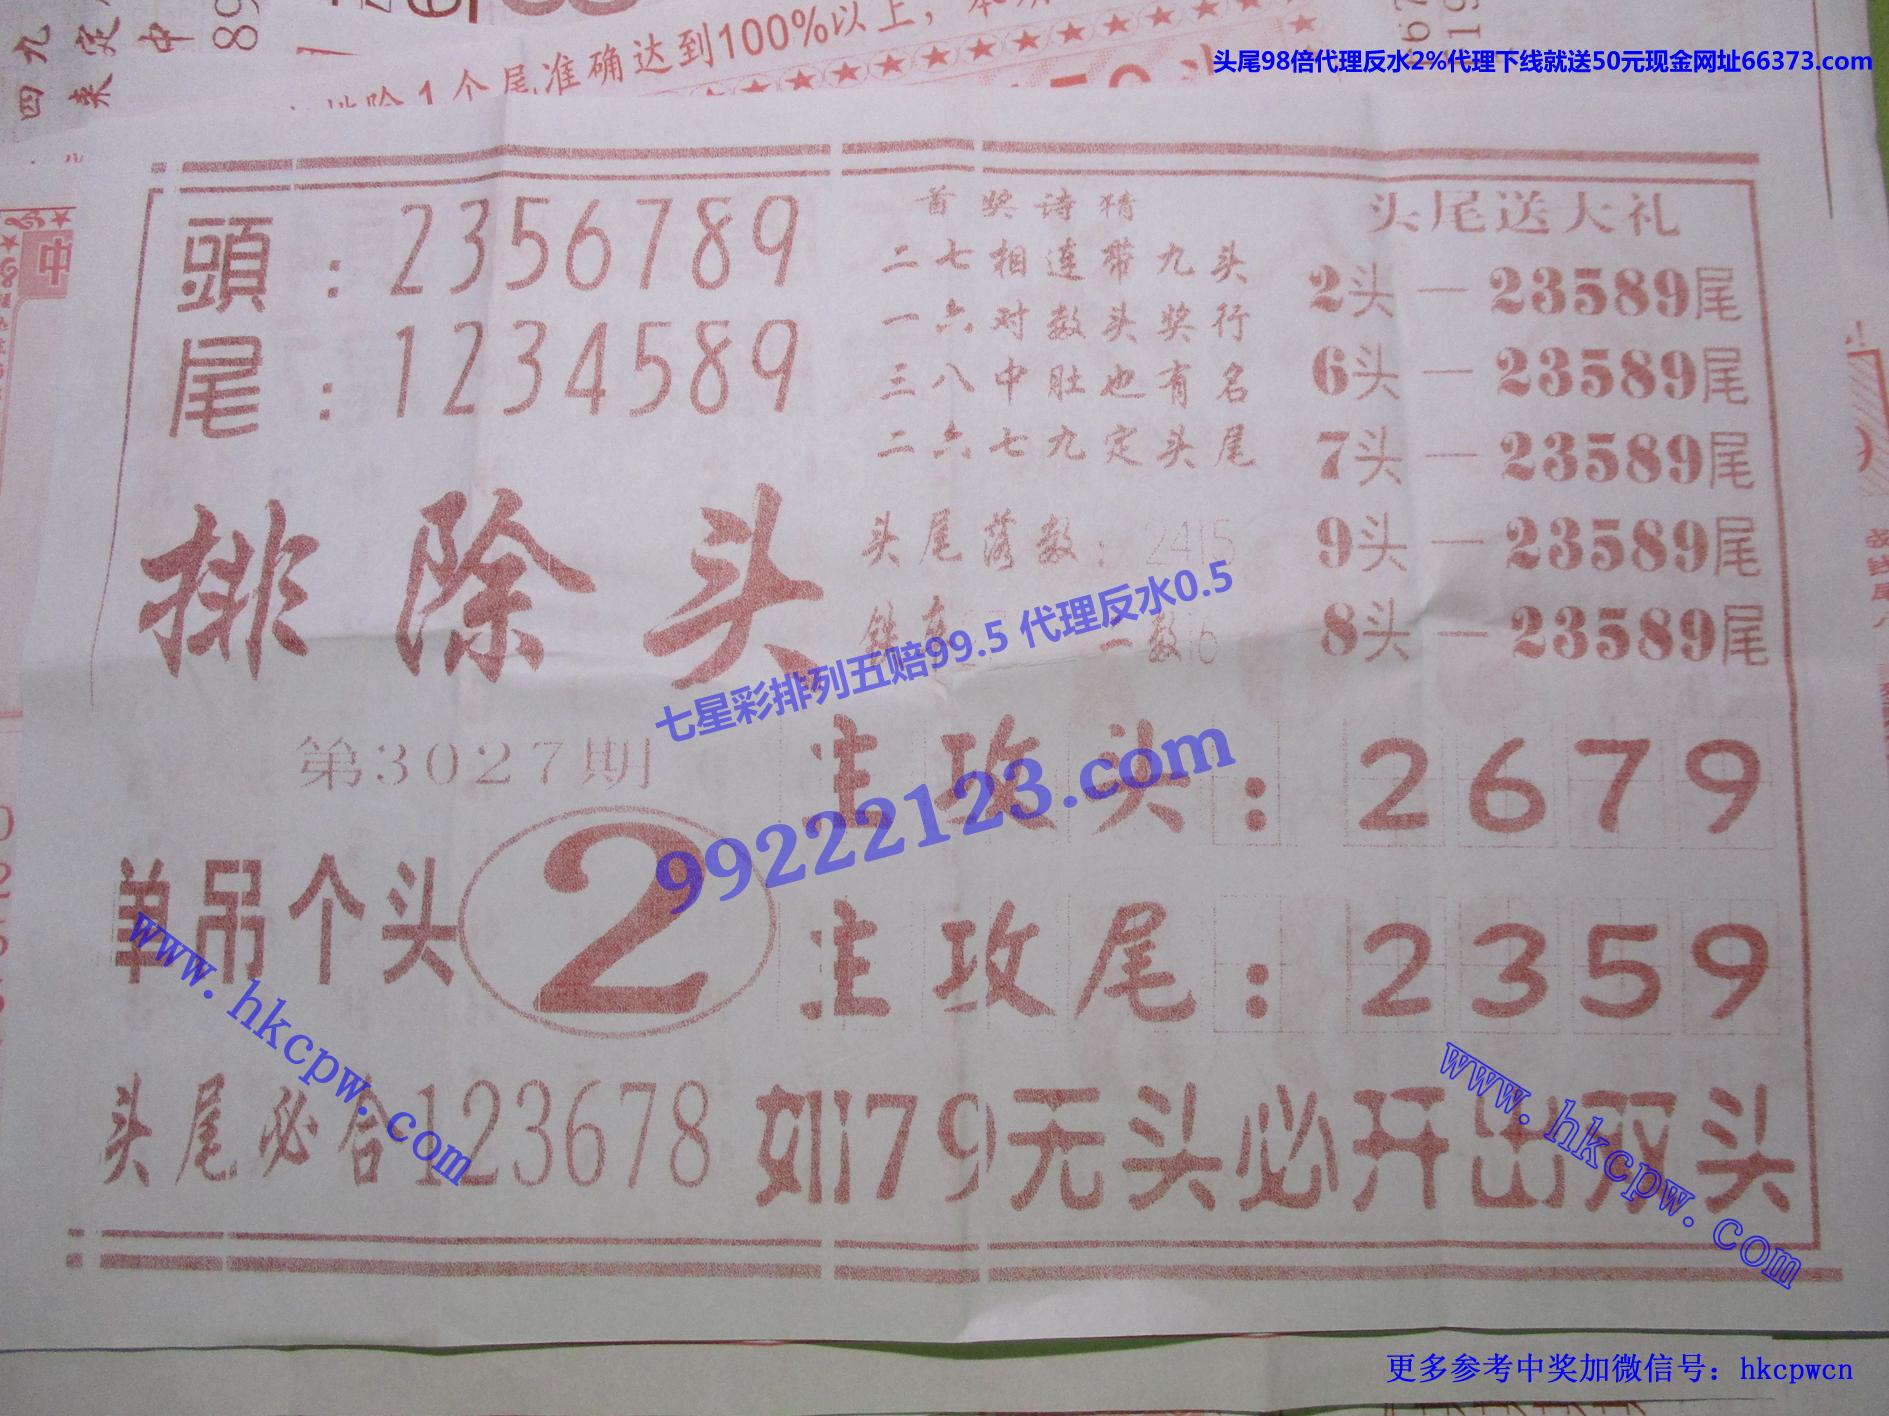 四九
来定
中
89
准确达到100%以上，本
排除1个尾
头尾98倍代理反水2%代理下线就送50元现金网址66373.com
中
頭：2356789
尾：1234589
首奖诗猜
二七相连带九头
一六对数头奖行
三八中肚也有名
二六七九定头尾
头尾落数：2415
二数16
头尾送大礼
2头—23589尾
6头—23589尾
7头—23589尾
9头—23589尾
8头—23589尾
排除头
七星彩排列五赔99.5 代理反水0.5
99222123.com
第3027期
单吊个头 2
主攻头：2679
主攻尾：2359
www.hkcpw.com
头尾必合123678
如79无头必开出双头
www.hkcpw.com
更多参考中奖加微信号：hkcpwcn